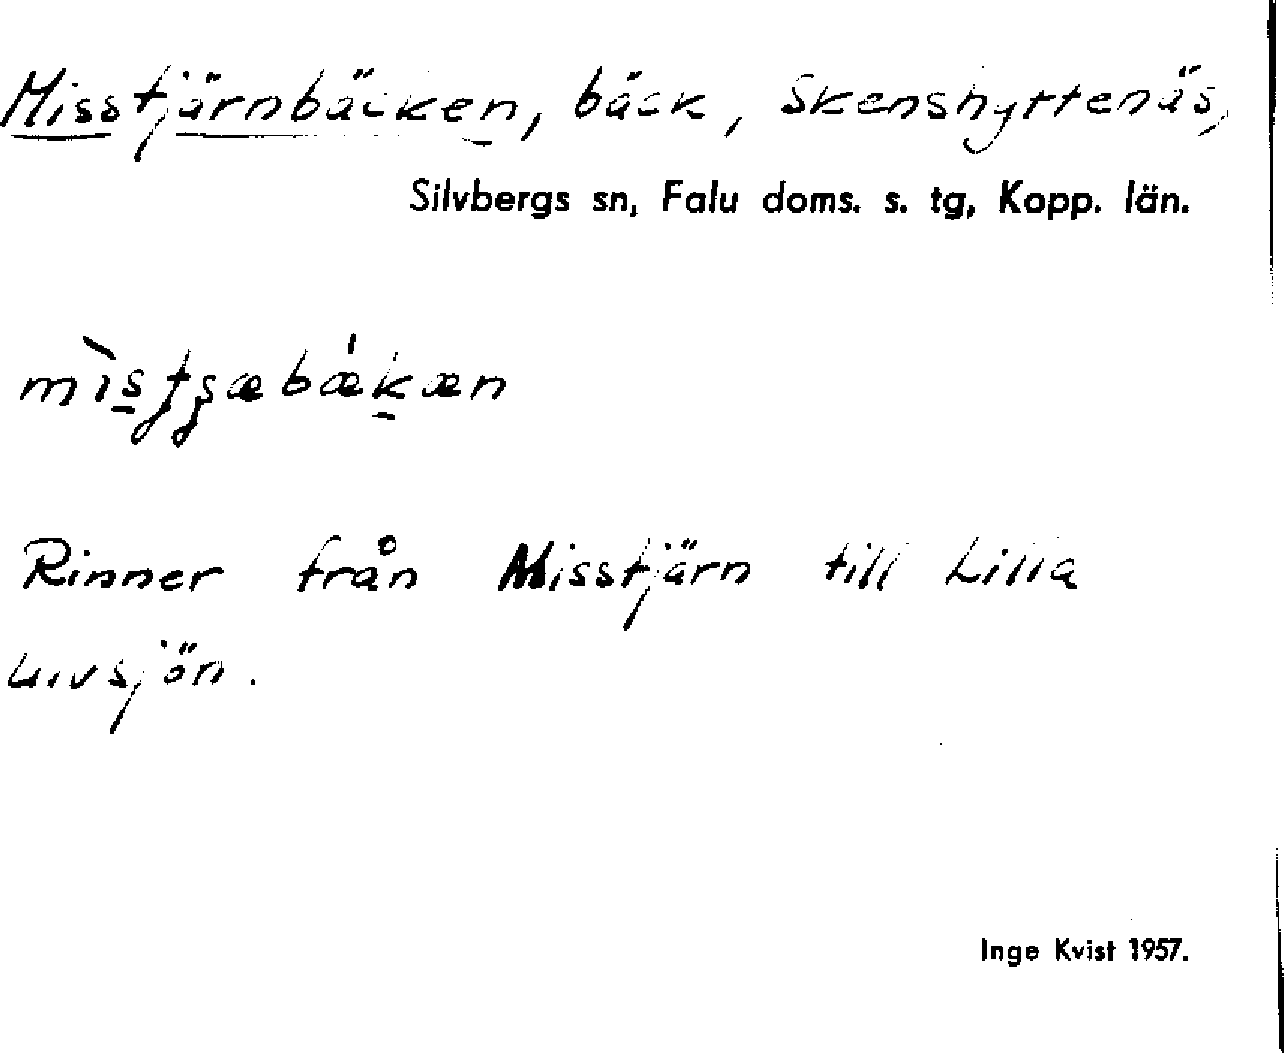 Misstjärnbäcken, bäck, Skenshyttenäs,
Silvbergs sn, Falu doms. s. tg, Kopp. län.
Rinner från Misstjärn till Lilla
Ulvsjön.
Inge Kvist 1957.